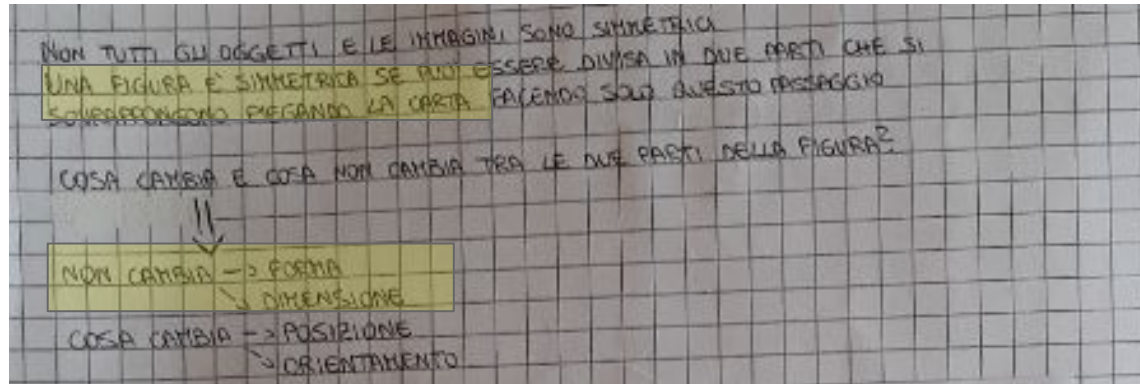 NON TUTTI GLI OGGETTI E LE IMMAGINI SONO SIMMETRICI
UNA FIGURA E' SIMMETRICA SE PUO' ESSERE DIVISA IN DUE PARTI CHE SI
SOVRAPPONGONO PIEGANDO LA CARTA FACENDO SOLO QUESTO PASSAGGIO
COSA CAMBIA E COSA NON CAMBIA TRA LE DUE PARTI DELLA FIGURA?
NON CAMBIA -> FORMA
DIMENSIONE
COSA CAMBIA -> POSIZIONE
ORIENTAMENTO